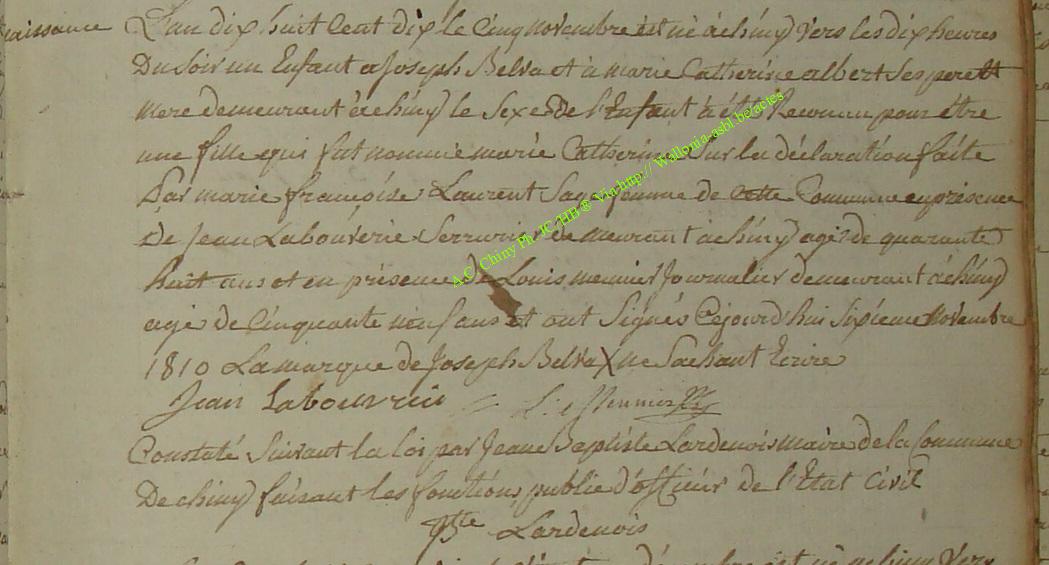 naissance
L'an dix huit Cent dix le Cinq novembre est né à chiny vers les dix heures
Du soir un Enfant a Joseph Belva et à marie Catherine albert ses pere et
mere demeurant à chiny le sexe de l'Enfant à été Reconnu pour être
une fille qui fut nommée marie Catherine Sur la déclaration faite
Par marie françoise Laurent Sage femme de cette Commune en présence
De Jean Labouverie Serrurier demeurant à chiny agé de quarante
huit ans et en présence de Louis meunier Journalier demeurant à chiny
agé de Cinquante neuf ans et ont Signés Cejourd'hui Sixieme Novembre
1810 La marque de Joseph Belva X ne Sachant Ecrire
Jean Labouvrie L: Meunier
Constaté Suivant la loi par Jean Baptiste Lardenois maire de la Commune
De chiny faisant les fonctions publie d'officier de l'Etat Civil
Btte Lardenois
A.C. Chiny Ph. JC HB ® Via http:// Wallonia-asbl.be/actes